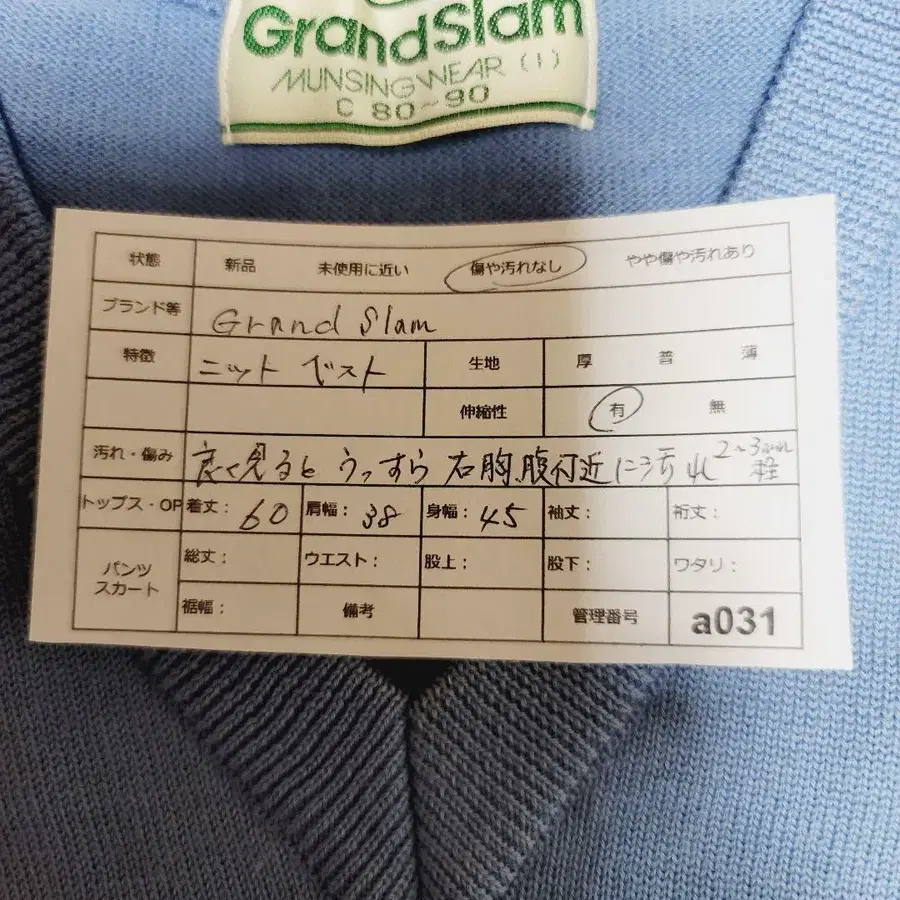 GrandSlam
MUNSINGWEAR (1)
C 80~90
状態 新品 未使用に近い 傷や汚れなし やや傷や汚れあり
ブランド等 Grand Slam
特徴 ニット ベスト 生地 厚 普 薄
伸縮性 有 無
汚れ・傷み 良く見ると うっすら 右胸、腹付近に汚れ 2~3
トップス・OP 着丈: 60 肩幅: 38 身幅: 45 袖丈: 裄丈:
パンツ スカート 総丈: ウエスト: 股上: 股下: ワタリ:
裾幅: 備考 管理番号 a031